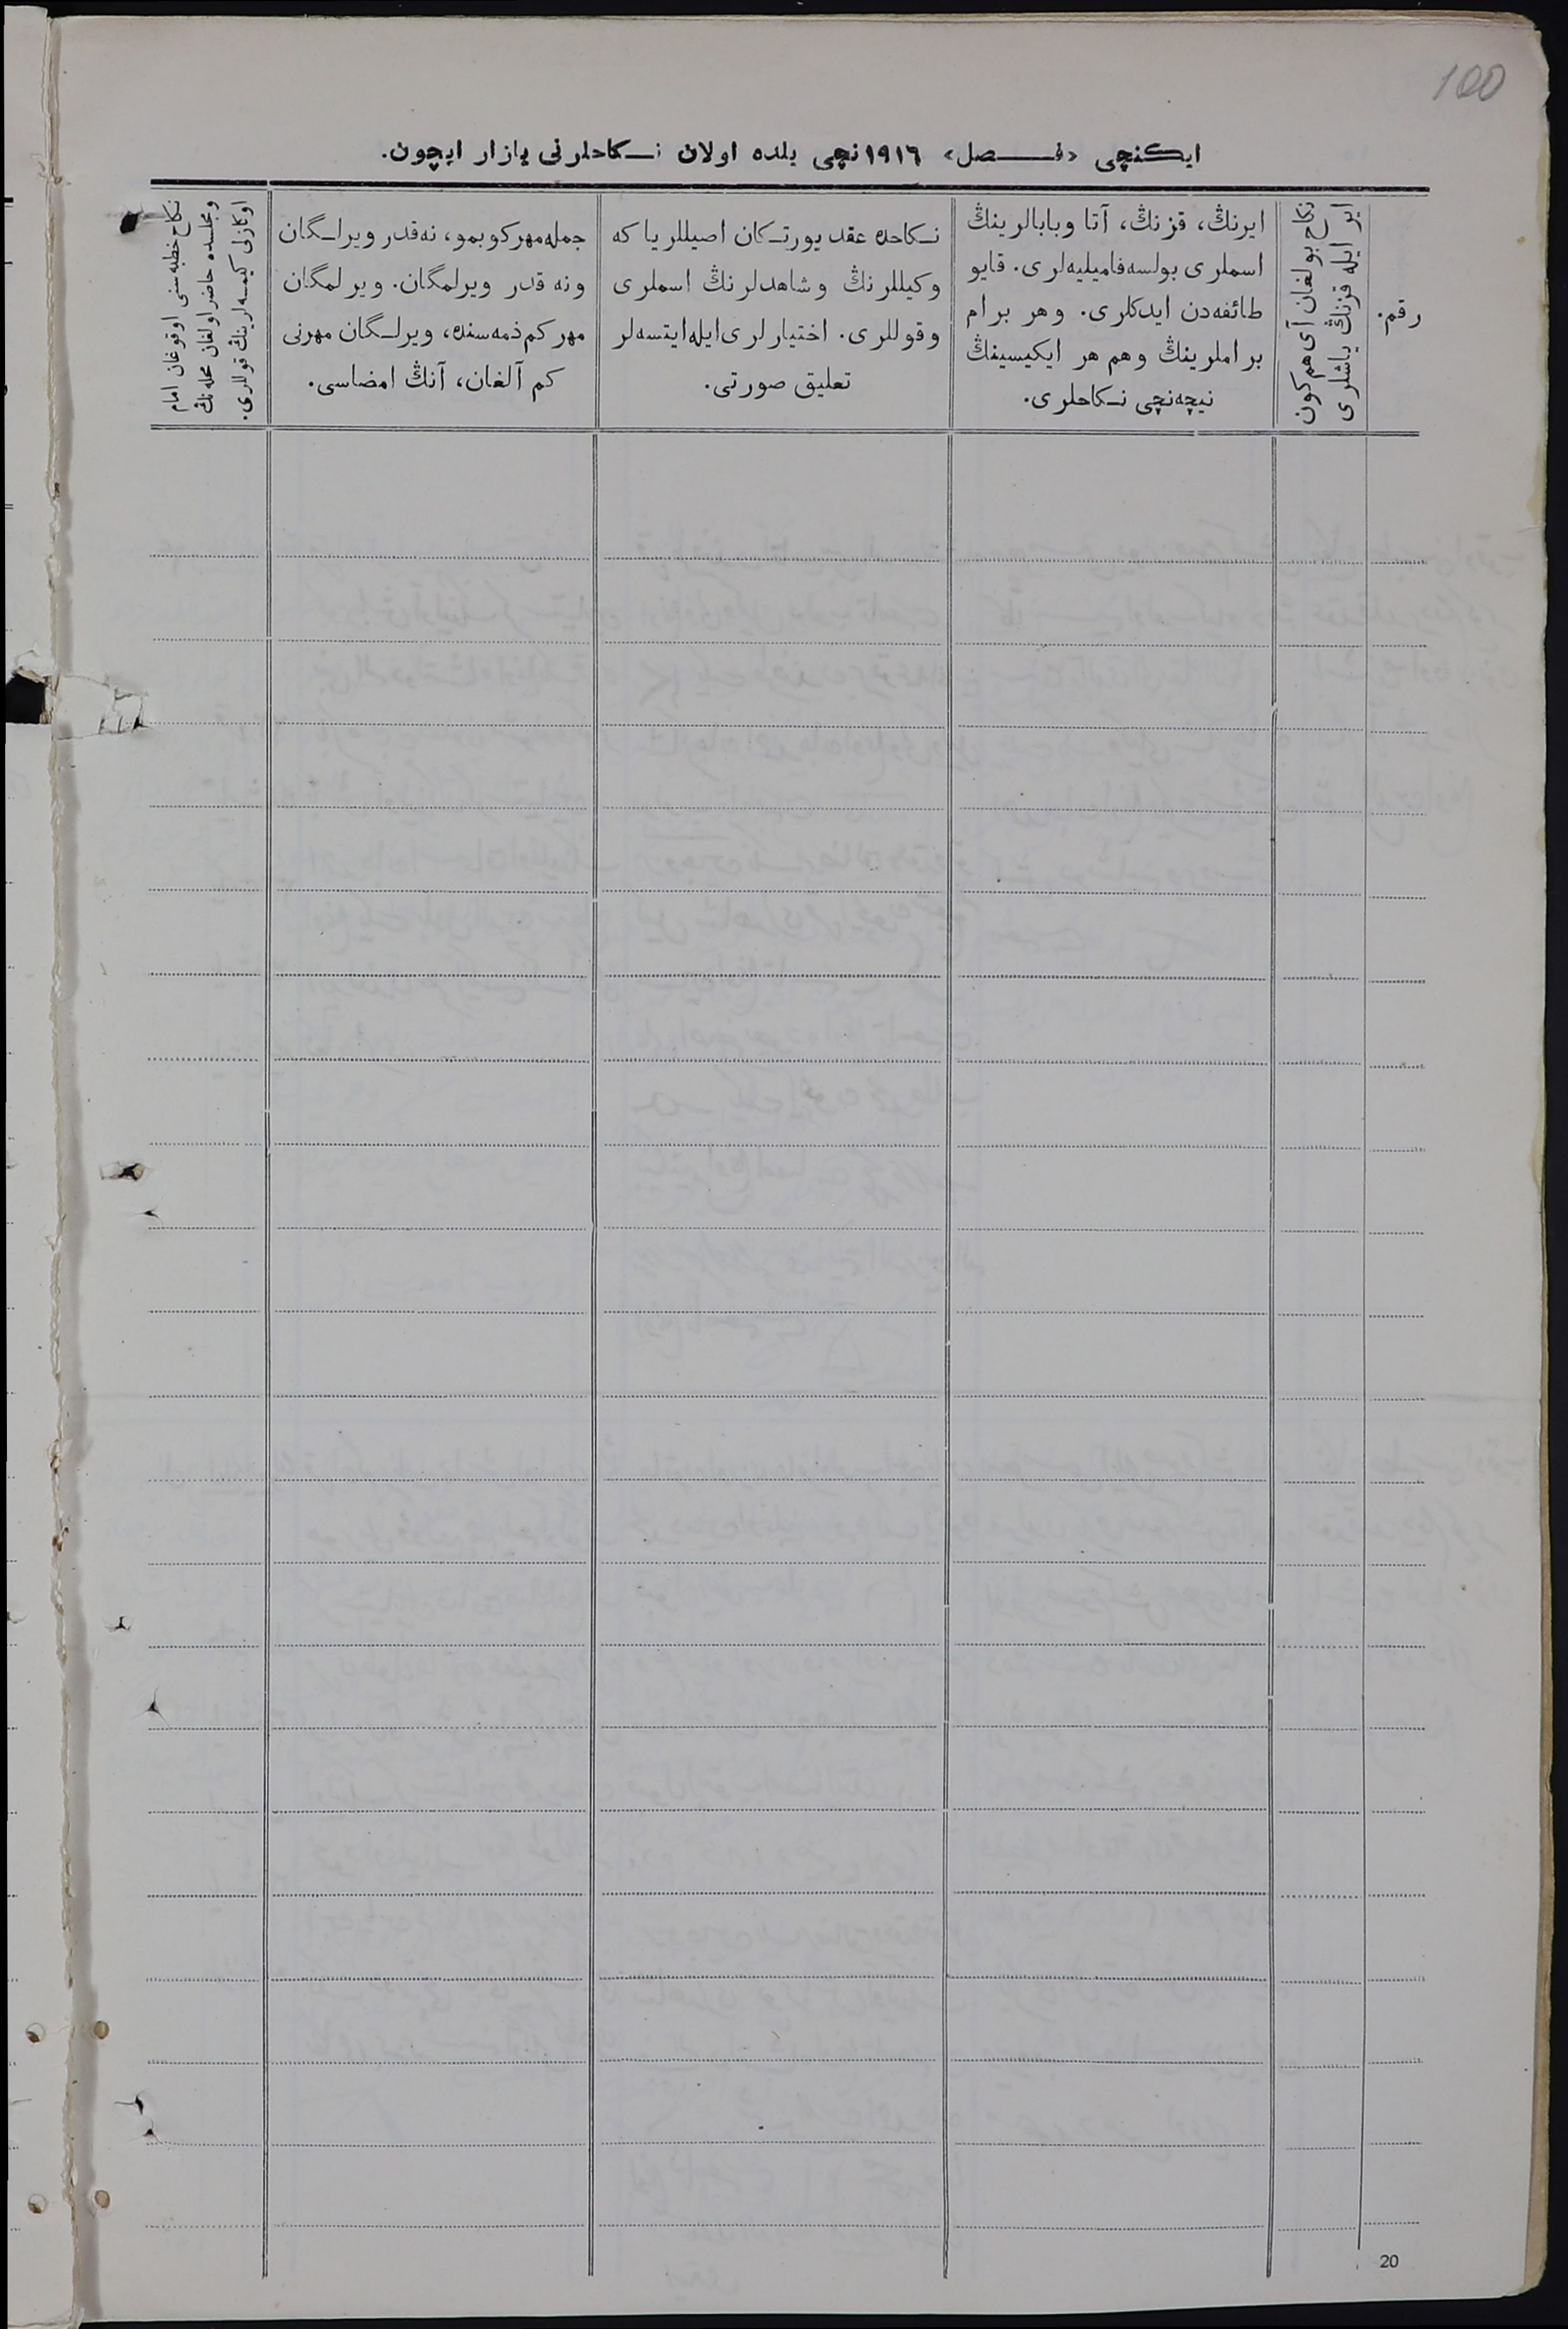 100
ایکنچی «فصل» ١٩١٦نچی یلده اولان نکاحلرنی یازار ایچون.
رقم.
ایر ایله قزنڭ یاشلری
نکاح بولغان آی هم کون
ایرنڭ، قزنڭ، آتا وبابالرینڭ
اسملری بولسه فامیلیه‌لری. قایو
طائفه‌دن ایدکلری. وهر برام
براملرینڭ وهم هر ایکیسینڭ
نیچه‌نچی نکاحلری.
نکاحده عقد یورتکان اصیللر یا که
وکیللرنڭ وشاهدلرنڭ اسملری
وقوللری. اختیارلری ایله ایتسه‌لر
تعلیق صورتی.
جمله مهر کوبمو، نه‌قدر ویرلگان
ونه قدر ویرلمگان. ویرلمگان
مهر کم ذمه‌سنده، ویرلگان مهرنی
کم آلغان، آنڭ امضاسی.
نکاح خطبه‌سنی اوقوغان امام
ومجلسده حاضر اولغان محله‌نڭ
اوکازلی کیمسه‌لرینڭ قوللری.
20